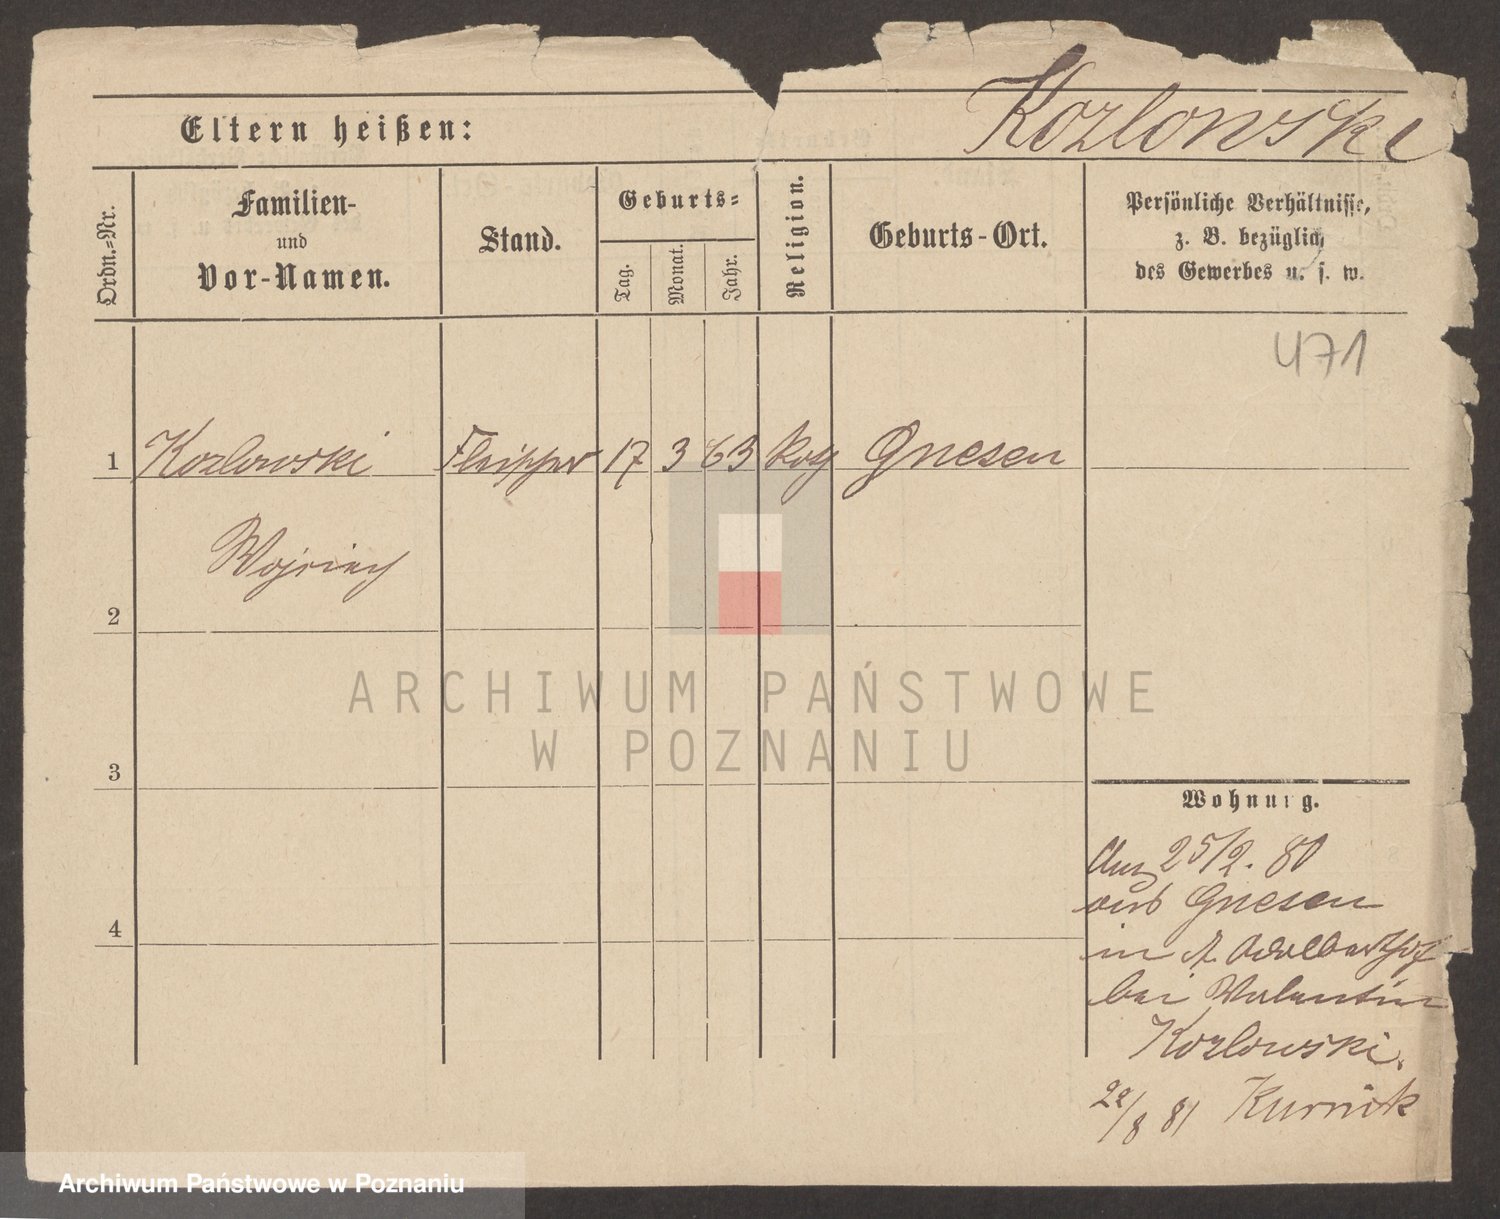 Kozlowski
Eltern heißen:
Ordn.=Nr.
Familien-
und
Vor-Namen.
Stand.
Geburts=
Tag.
Monat.
Jahr.
Religion.
Geburts-Ort.
Persönliche Verhältnisse,
z. B. bezüglich
des Gewerbes u. s. w.
471
1 Kozlowski 17 3 63 Gnesen
Wojciech
2
3
4
ARCHIWUM PAŃSTWOWE
W POZNANIU
Wohnung.
25/2. 80
aus Gnesen
in
bei Valentin
Kozlowski.
22/8 81 Kurnik
Archiwum Państwowe w Poznaniu